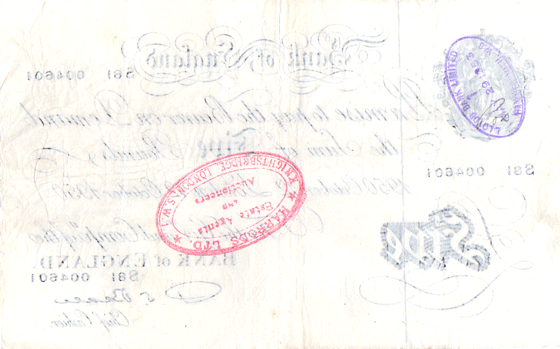 Bank of England
S81 004601
LLOYDS BANK LIMITED
I Promise to pay the Bearer on Demand
the Sum of Five Pounds
S81 004601
1950 October
London
October 1950
HARRODS LTD.
KNIGHTSBRIDGE, LONDON, S.W.1.
Estate Agents
AND
Auctioneers
For the Gov.r and Comp.a of the
BANK OF ENGLAND.
S81 004601
Five
Beale
Chief Cashier